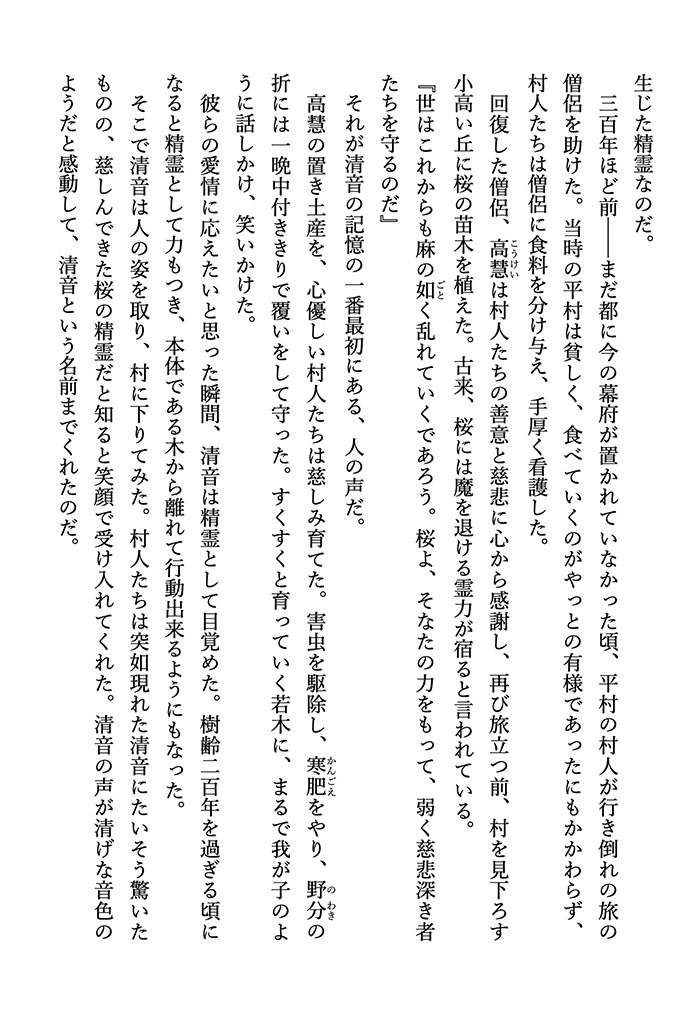 生じた精霊なのだ。
　三百年ほど前――まだ都に今の幕府が置かれていなかった頃、平村の村人が行き倒れの旅の
僧侶を助けた。当時の平村は貧しく、食べていくのがやっとの有様であったにもかかわらず、
村人たちは僧侶に食料を分け与え、手厚く看護した。
　回復した僧侶、高慧こうけいは村人たちの善意と慈悲に心から感謝し、再び旅立つ前、村を見下ろす
小高い丘に桜の苗木を植えた。古来、桜には魔を退ける霊力が宿ると言われている。
『世はこれからも麻の如ごとく乱れていくであろう。桜よ、そなたの力をもって、弱く慈悲深き者
たちを守るのだ』
　それが清音の記憶の一番最初にある、人の声だ。
　高慧の置き土産を、心優しい村人たちは慈しみ育てた。害虫を駆除し、寒肥かんごえをやり、野分のわきの
折には一晩中付ききりで覆いをして守った。すくすくと育っていく若木に、まるで我が子のよ
うに話しかけ、笑いかけた。
　彼らの愛情に応えたいと思った瞬間、清音は精霊として目覚めた。樹齢二百年を過ぎる頃に
なると精霊として力もつき、本体である木から離れて行動出来るようにもなった。
　そこで清音は人の姿を取り、村に下りてみた。村人たちは突如現れた清音にたいそう驚いた
ものの、慈しんできた桜の精霊だと知ると笑顔で受け入れてくれた。清音の声が清げな音色の
ようだと感動して、清音という名前までくれたのだ。